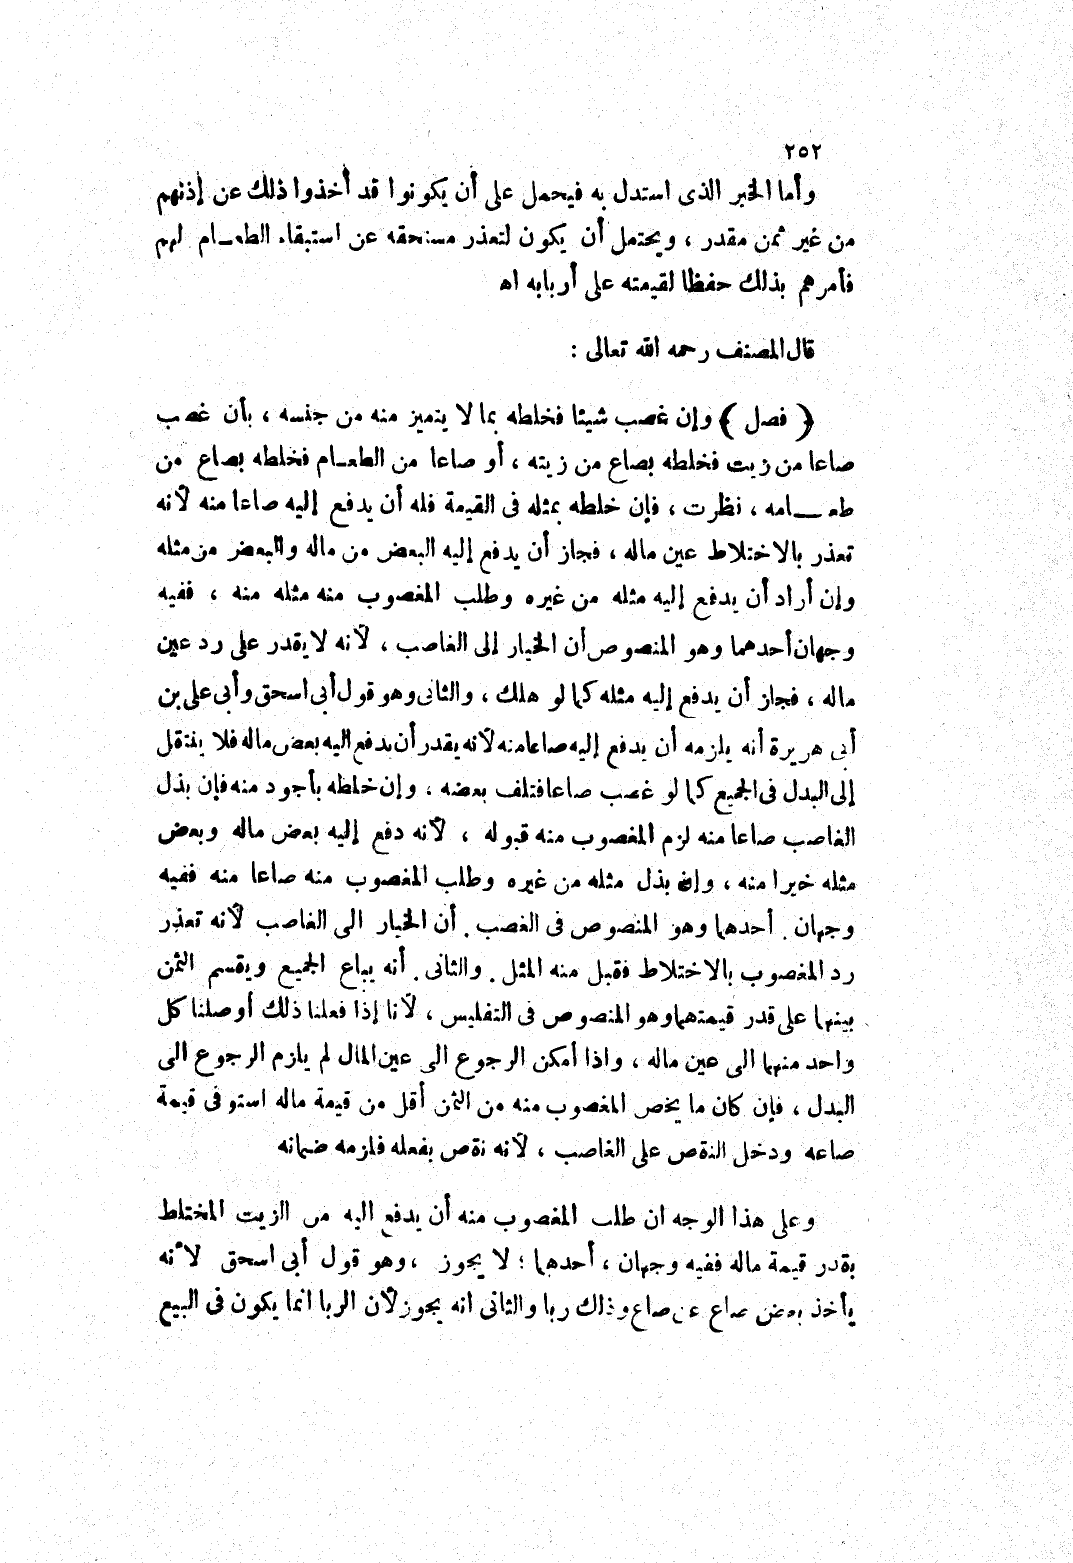 ٢٥٢
وأما الخبر الذى استدل به فيحمل على أن يكونوا قد أخذوا ذلك عن إذنهم
من غير ثمن مقدر ، ويحتمل أن يكون لتعذر مستحقه عن استبقاء الطعام لهم
فأمرهم بذلك حفظا لقيمته على أربابه اه
قال المصنف رحمه الله تعالى :
( فصل ) وإن غصب شيئا فخلطه بما لا يتميز منه من جنسه ، بأن غصب
صاعا من زيت فخلطه بصاع من زيته ، أو صاعا من الطعام فخلطه بصاع من
طعامه ، نظرت ، فإن خلطه بمثله فى القيمة فله أن يدفع إليه صاعا منه لأنه
تعذر بالاختلاط عين ماله ، فجاز أن يدفع إليه البعض من ماله والبعض من مثله
وإن أراد أن يدفع إليه مثله من غيره وطلب المغصوب منه مثله منه ، ففيه
وجهان أحدهما وهو المنصوص أن الخيار إلى الغاصب ، لأنه لا يقدر على رد عين
ماله ، فجاز أن يدفع إليه مثله كما لو هلك ، والثانى وهو قول أبى اسحق وأبى على بن
أبى هريرة أنه يلزمه أن يدفع إليه صاعا منه لأنه يقدر أن يدفع اليه بعض ماله فلا ينتقل
إلى البدل فى الجميع كما لو غصب صاعا فتلف بعضه ، وإن خلطه بأجود منه فإن بذل
الغاصب صاعا منه لزم المغصوب منه قبوله ، لأنه دفع إليه بعض ماله وبعض
مثله خيرا منه ، وإن بذل مثله من غيره وطلب المغصوب منه صاعا منه ففيه
وجهان . أحدهما وهو المنصوص فى الغصب . أن الخيار الى الغاصب لأنه تعذر
رد المغصوب بالاختلاط فقبل منه المثل . والثانى . أنه يباع الجميع ويقسم الثمن
بينهما على قدر قيمتهما وهو المنصوص فى التفليس ، لأنا إذا فعلنا ذلك أوصلنا كل
واحد منهما الى عين ماله ، واذا أمكن الرجوع الى عين المال لم يلزم الرجوع الى
البدل ، فإن كان ما يخص المغصوب منه من الثمن أقل من قيمة ماله استوفى قيمة
صاعه ودخل النقص على الغاصب ، لأنه نقص بفعله فلزمه ضمانه
وعلى هذا الوجه ان طلب المغصوب منه أن يدفع اليه من الزيت المختلط
بقدر قيمة ماله ففيه وجهان ، أحدهما : لا يجوز ، وهو قول أبى اسحق لأنه
يأخذ بعض صاع عن صاع وذلك ربا والثانى انه يجوز لأن الربا انما يكون فى البيع